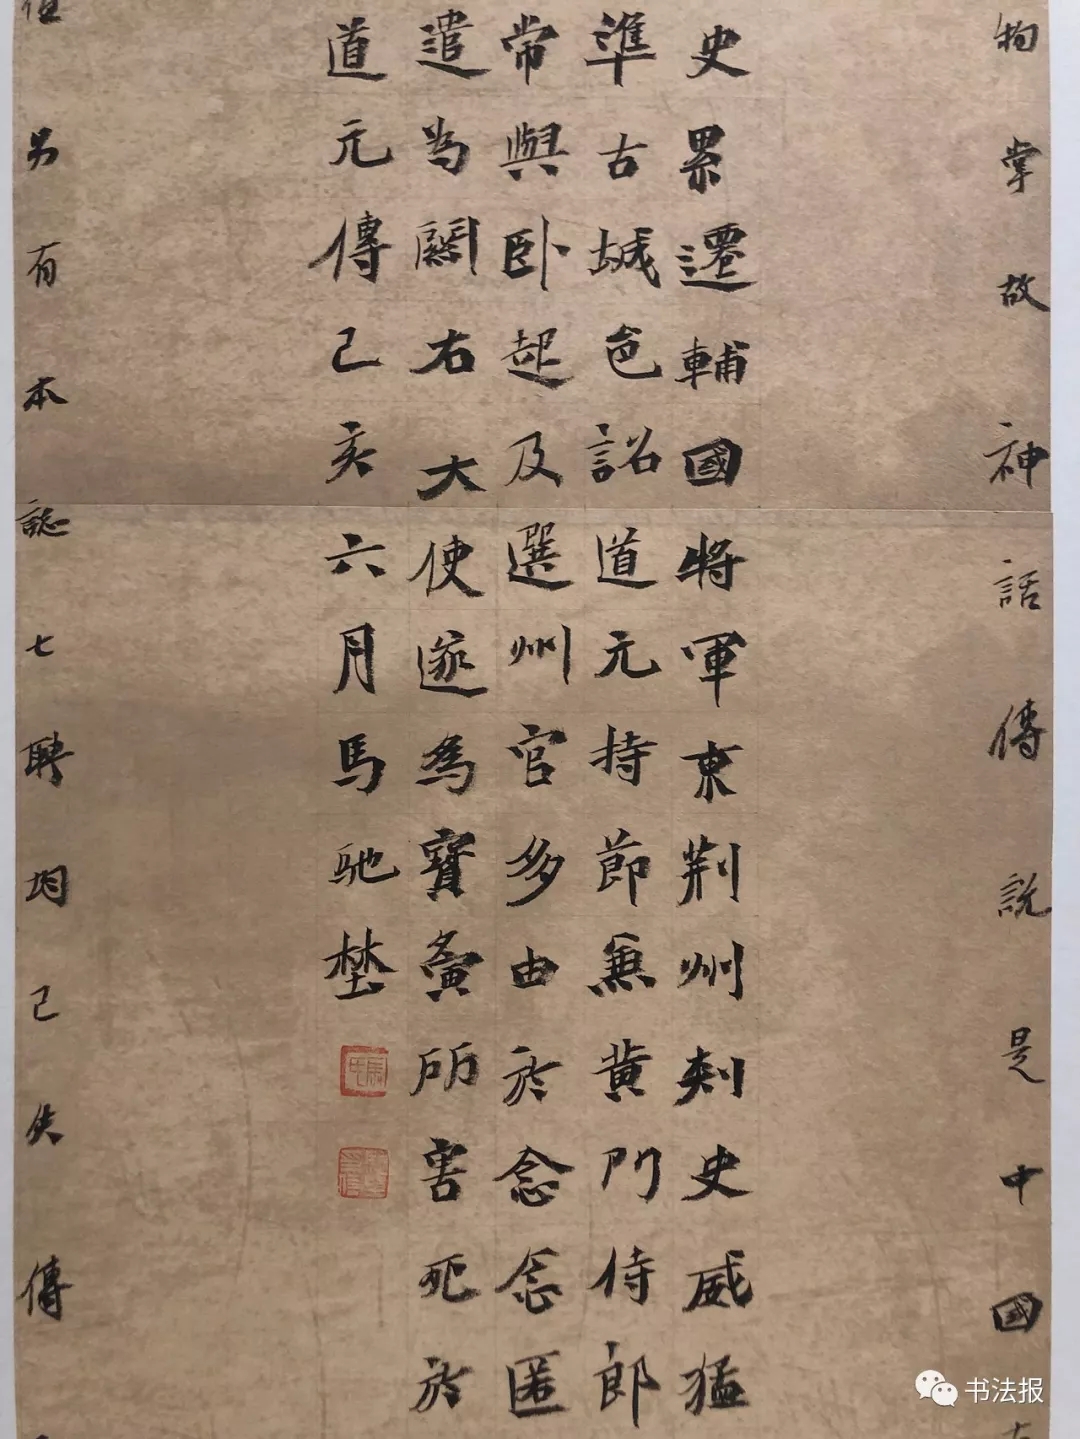 物掌故神話傳說是中國古
史累遷輔國將軍東荆州刺史威猛
準古城邑詔道元持節兼黄門侍郎
常與卧起及選州官多由於念念匿
遣為關右大使遂為寳夤所害死於
道元傳己亥六月馬馳埜
另有本誌七聘均已失傳
书法报